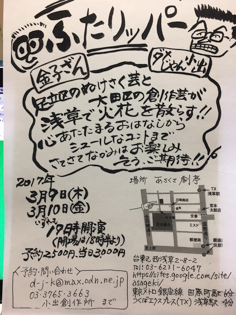 ふたリッパー
金子ざん
ダメじゃん小出
足立区のぬけさく芸と
大田区の創作芸が
浅草で火花を散らす!!
心あたたまるおはなしから
シュールなコントまで
さてさてなかみはお楽しみ
そう、ご期待!!
2017年
3月9日(木)
3月10日(金)
いずれも
19時開演
(開場は18時半より)
予約2500円、当日3000円
場所 あさくさ劇亭
台東区西浅草2-8-2
Tel:03-6231-6047
https://sites.google.com/site/
asageki/
東京メトロ銀座線 田原町駅
つくばエクスプレス(TX) 浅草駅 4分
〈予約・問い合わせ〉
d-j-k@max.odn.ne.jp
03-3765-3663
小出創作所 まで